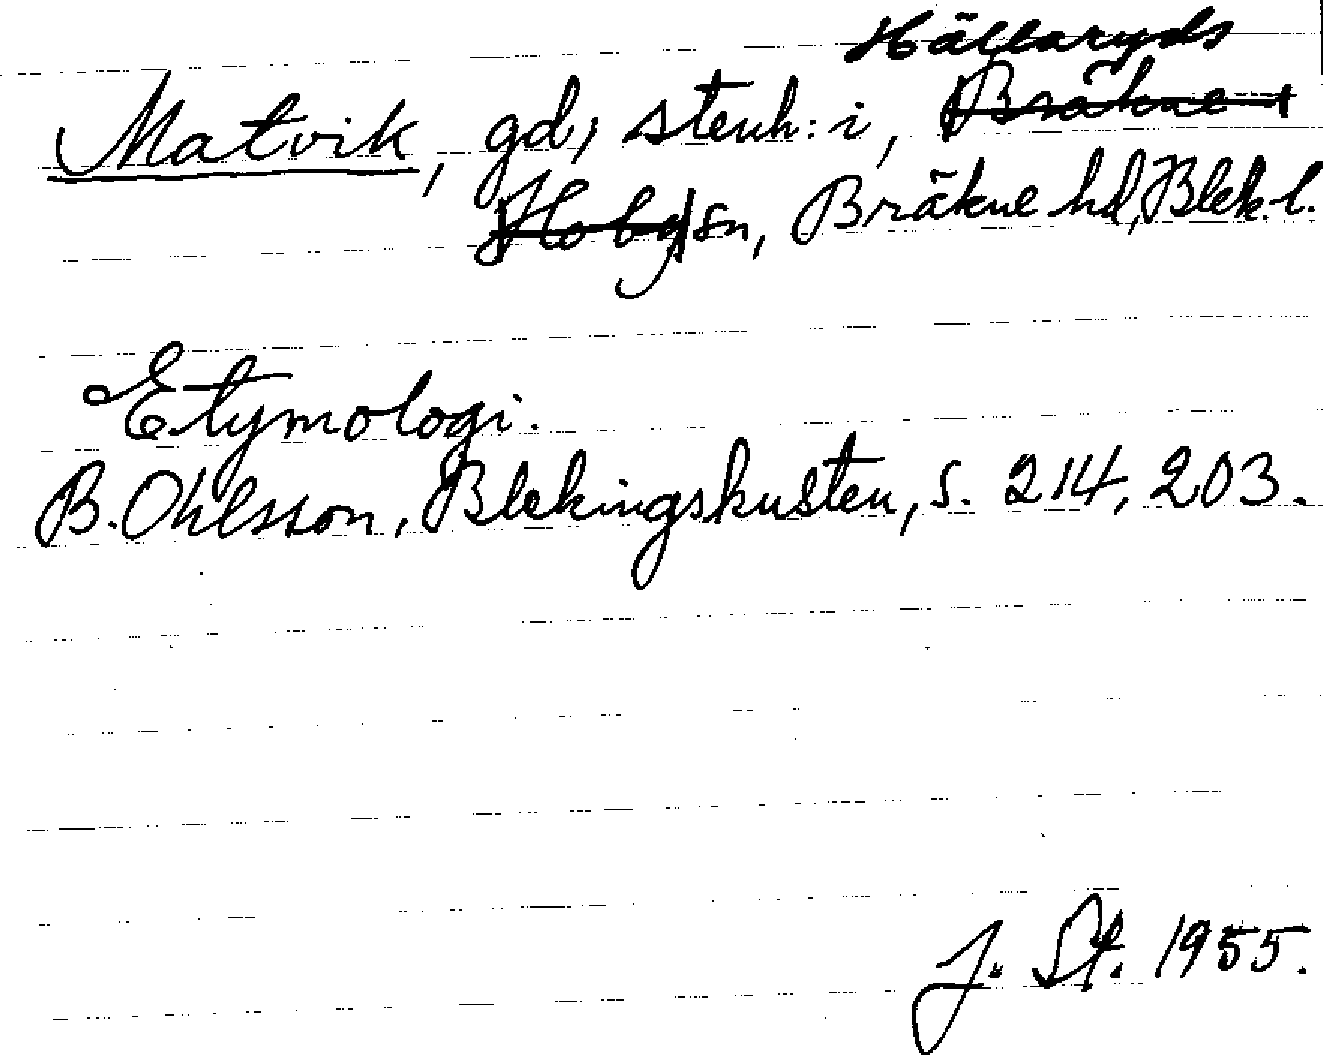 Hällaryds
Matvik, gd, stenh: i, Bräkne-
Hobysn, Bräkne hd, Blek. l.
Etymologi.
B. Ohlsson, Blekingskusten, s. 214, 203.
J. St. 1955.